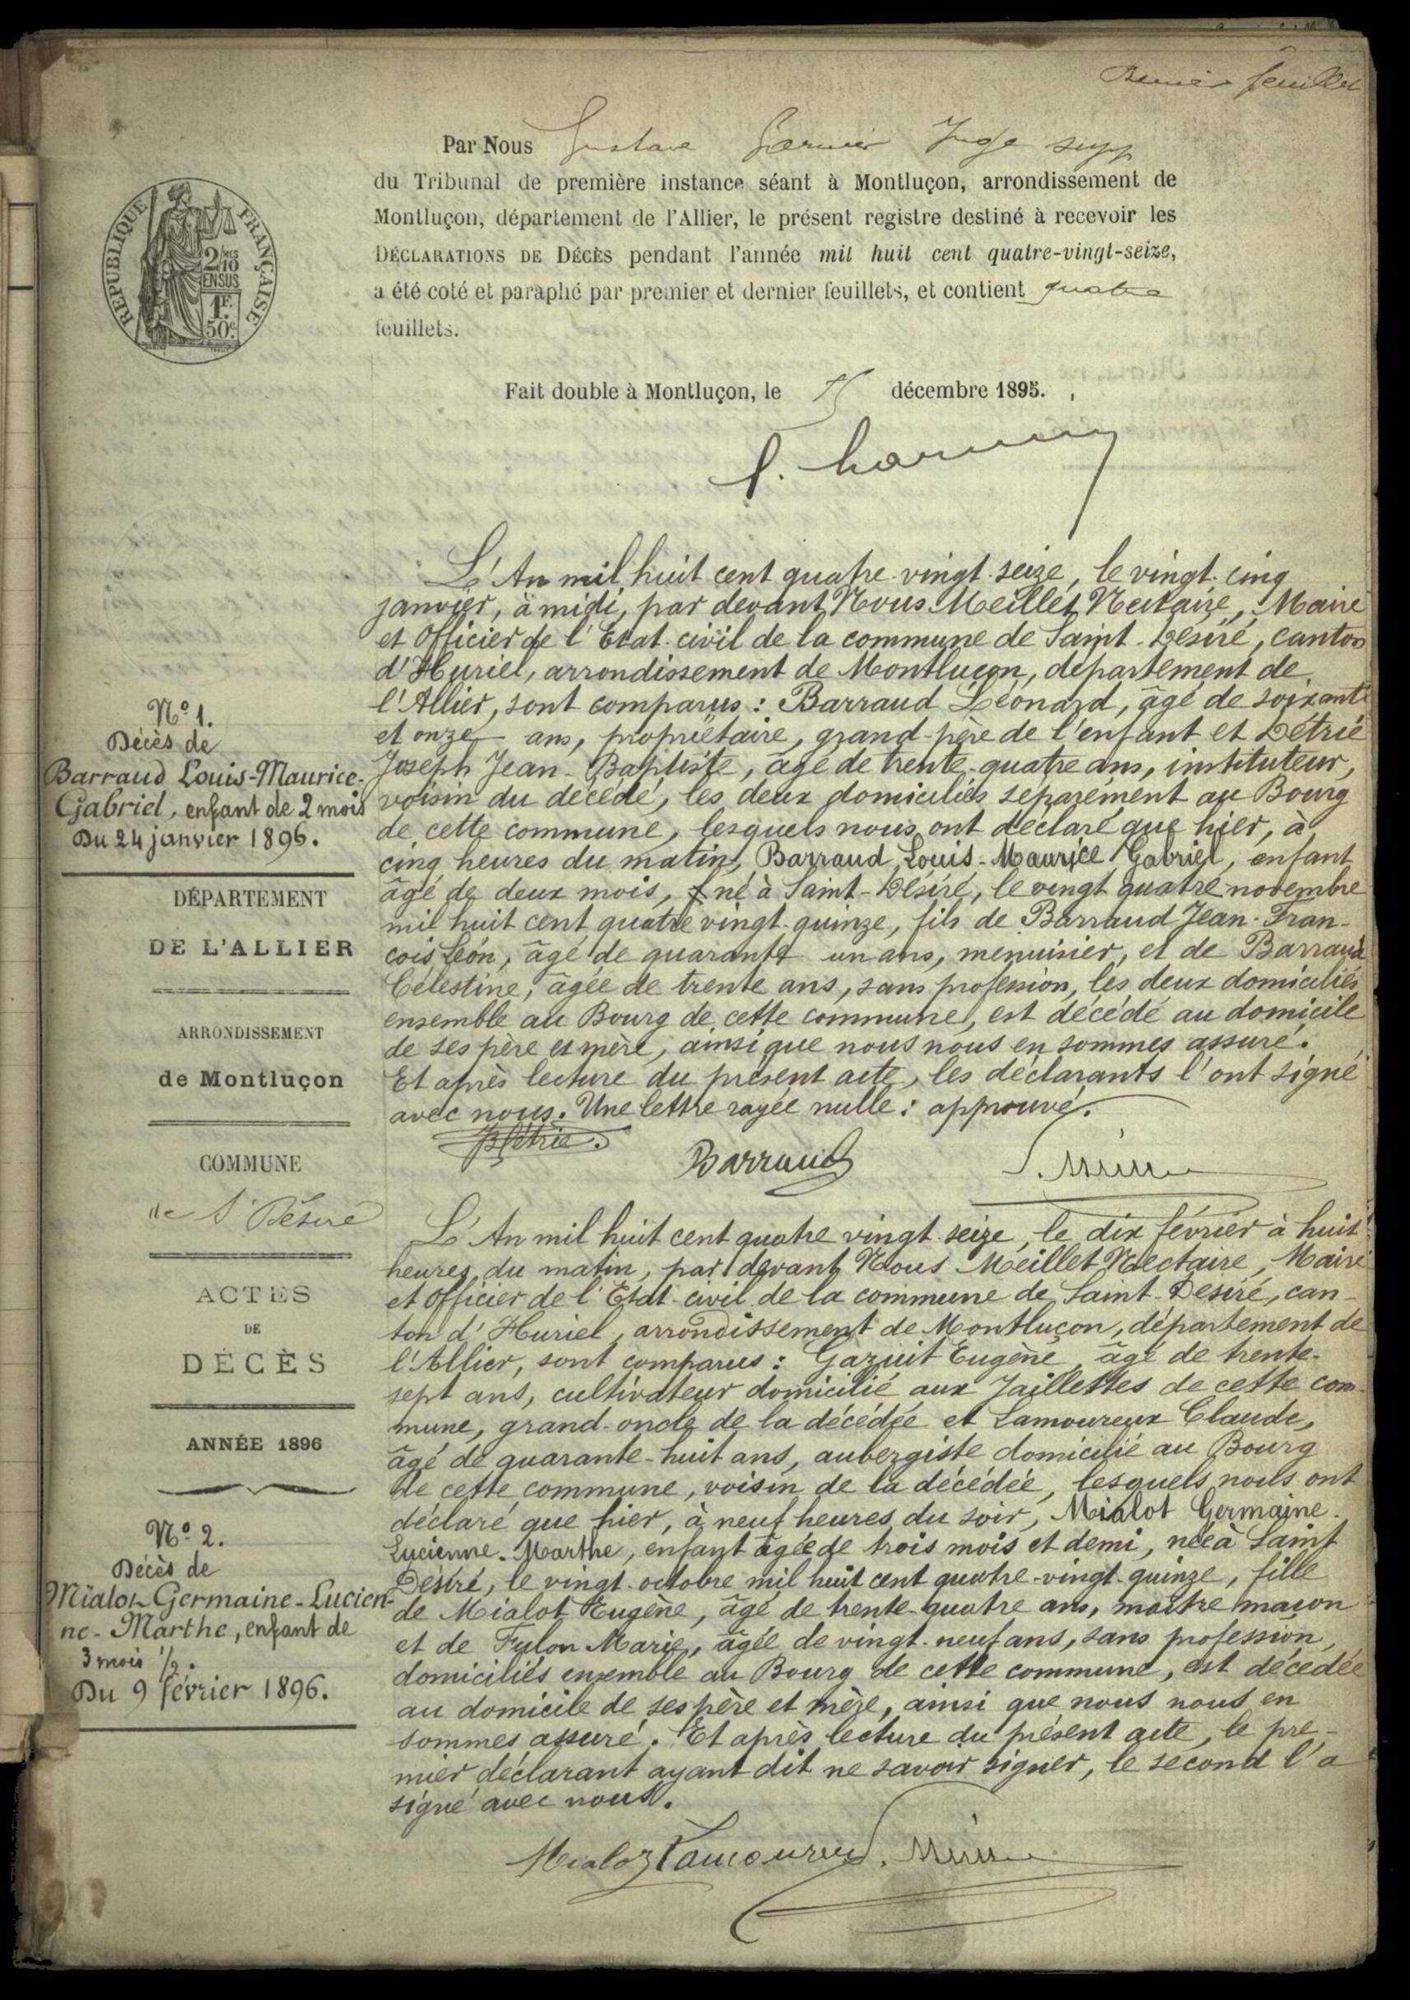 feuillet
Par Nous Gustave Juge supp
du Tribunal de première instance séant à Montluçon, arrondissement de
Montluçon, département de l'Allier, le présent registre destiné à recevoir les
DÉCLARATIONS DE DÉCÈS pendant l'année mil huit cent quatre-vingt-seize,
a été coté et paraphé par premier et dernier feuillets, et contient quatre
feuillets.
Fait double à Montluçon, le décembre 1895.
RÉPUBLIQUE FRANÇAISE
2/10 MES
EN SUS
1F.
50c.
L'An mil huit cent quatre-vingt-seize, le vingt-cinq
janvier, à midi, par devant Nous Meillet Nectaire, Maire
et Officier de l'Etat-civil de la commune de Saint-Désiré, canton
d'Huriel, arrondissement de Montluçon, département de
l'Allier, sont comparus : Barraud Léonard, âgé de soixante
et onze ans, propriétaire, grand-père de l'enfant et Détrié
Joseph Jean-Baptiste, âgé de trente-quatre ans, instituteur,
voisin du décédé, les deux domiciliés séparément au Bourg
de cette commune, lesquels nous ont déclaré que hier, à
cinq heures du matin, Barraud Louis-Maurice Gabriel, enfant
âgé de deux mois, né à Saint-Désiré, le vingt quatre novembre
mil huit cent quatre vingt-quinze, fils de Barraud Jean-Fran-
çois Léon, âgé de quarante un ans, menuisier, et de Barraud
Célestine, âgée de trente ans, sans profession, les deux domiciliés
ensemble au Bourg de cette commune, est décédé au domicile
de ses père et mère, ainsi que nous nous en sommes assuré.
Et après lecture du présent acte, les déclarants l'ont signé
avec nous. Une lettre rayée nulle : approuvé.
JBDétrié. Barraud
N° 1.
Décès de
Barraud Louis-Maurice-
Gabriel, enfant de 2 mois
Du 24 janvier 1896.
DÉPARTEMENT
DE L'ALLIER
ARRONDISSEMENT
de Montluçon
COMMUNE
de St Désiré
ACTES
DE
DÉCÈS
ANNÉE 1896
L'An mil huit cent quatre vingt-seize, le dix février à huit
heures du matin, par devant Nous Meillet Nectaire, Maire
et Officier de l'Etat-civil de la commune de Saint-Désiré, can-
ton d'Huriel, arrondissement de Montluçon, département de
l'Allier, sont comparus : Gazuit Eugène, âgé de trente-
sept ans, cultivateur domicilié aux Jaillettes de cette com-
mune, grand-oncle de la décédée et Lamoureux Claude,
âgé de quarante-huit ans, aubergiste domicilié au Bourg
de cette commune, voisin de la décédée, lesquels nous ont
déclaré que hier, à neuf heures du soir, Mialot Germaine-
Lucienne-Marthe, enfant âgée de trois mois et demi, née à Saint
Désiré, le vingt-octobre mil huit cent quatre-vingt-quinze, fille
de Mialot Eugène, âgé de trente-quatre ans, maître maçon
et de Fulon Marie, âgée de vingt-neuf ans, sans profession,
domiciliés ensemble au Bourg de cette commune, est décédée
au domicile de ses père et mère, ainsi que nous nous en
sommes assuré. Et après lecture du présent acte, le pre-
mier déclarant ayant dit ne savoir signer, le second l'a
signé avec nous.
Mialot Lamoureux
N° 2.
Décès de
Mialot Germaine-Lucien-
ne-Marthe, enfant de
3 mois 1/2.
Du 9 février 1896.